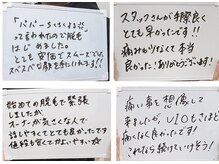 「パパーちくちくするよ」
って言われたので脱毛
はじめました。
とても安価でスムーズで、
スベスベな顔を手に入れます!!
スタッフさんが手際良く
とても早かったです!!
痛みがなくて本当
良かった!ありがとうございます!
初めての脱毛で緊張
しましたが、
オーナーが気さくな人で
話しやすくてとても良かったです
値段も安くてがよい
痛い事を想像して
来ましたが、VIOもさほど
痛くなく良かったです!
これなら続けていけそう!